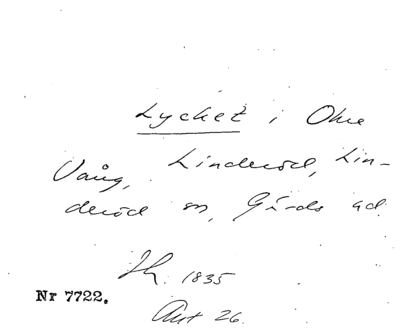 Lycket i Ohre
Vång, Linderöd, Lin-
deröd sn, Gärds hd.
Sk. 1835
Nr 7722.
Akt 26.